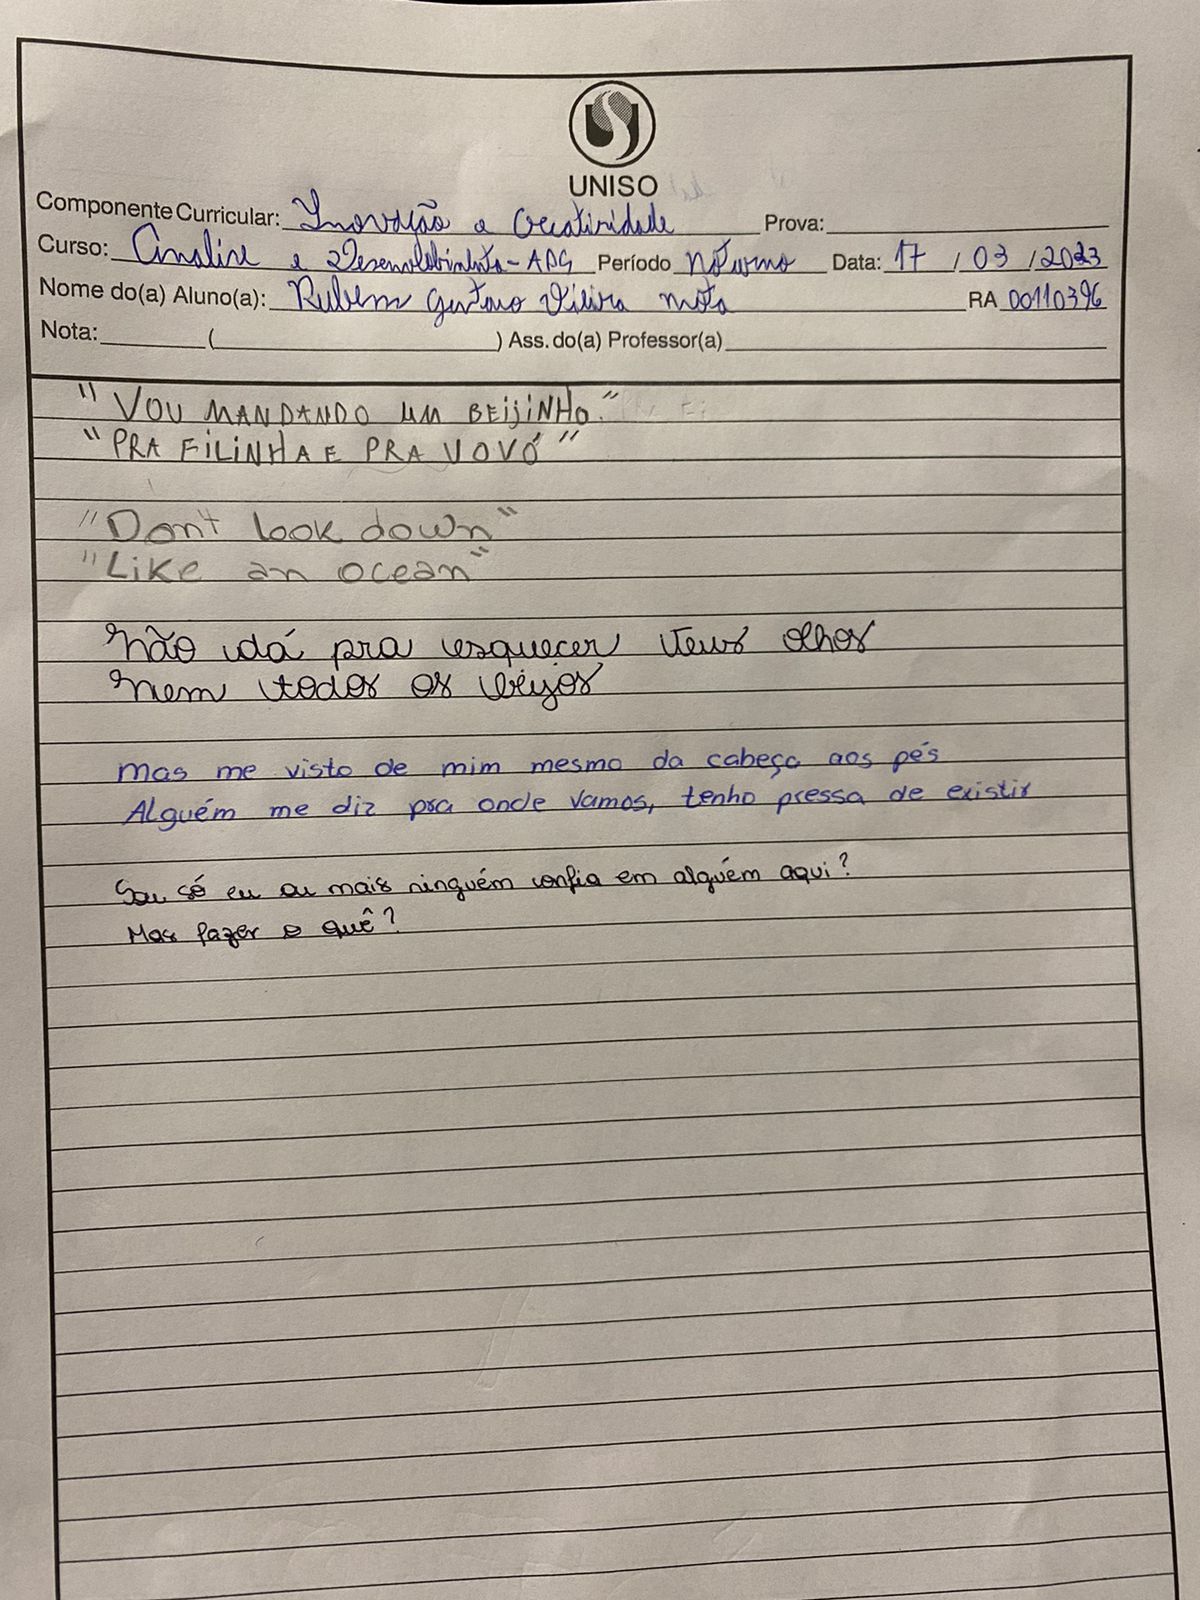 UNISO
Componente Curricular: Inovação e Creatividade Prova:
Curso: Analise e Desenvolvimento - ADG Período Noturno Data: 17 / 03 / 2023
Nome do(a) Aluno(a): Rubem Gustavo Vieira Mota RA 00110396
Nota: ( ) Ass. do(a) Professor(a)
"VOU MANDANDO UM BEIJINHO."
"PRA FILINHA E PRA VOVÓ"
"Don't look down"
"Like an ocean"
Não dá pra esquecer teus olhos
Nem todos os beijos
Mas me visto de mim mesmo da cabeça aos pés
Alguém me diz pra onde vamos, tenho pressa de existir
Sou só eu ou mais ninguém confia em alguém aqui?
Mas fazer o quê?